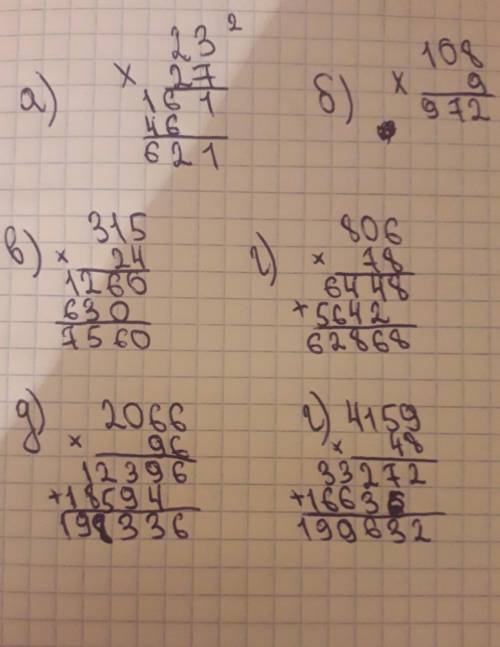 а) 23 ²
× 27
161
46
621
б) 108
× 9
972
в) 315
× 24
1260
630
7560
г) 806
× 78
6448
+ 5642
62868
д) 2066
× 96
12396
+ 18594
198336
г) 4159
× 48
33272
+ 16636
199632